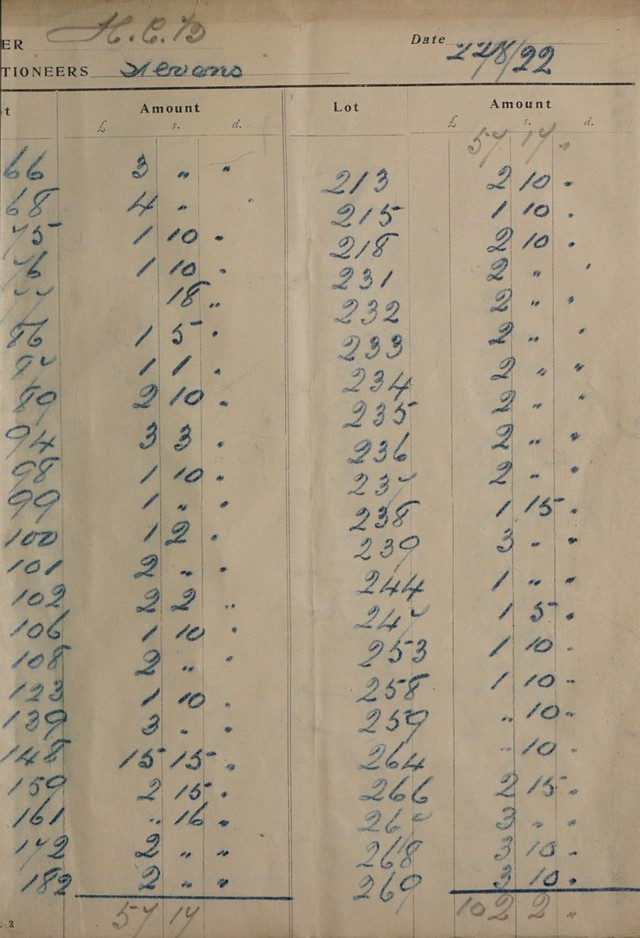 ER
TIONEERS Stevens
t Amount
£ s. d.
66 3 " "
68 4 " "
75 1 10 "
76 1 10 "
77 18 "
86 1 5 "
87 1 1 "
89 2 10 "
94 3 3 "
98 1 10 "
99 1 " "
100 1 2 "
101 2 " "
102 2 2 "
106 1 10 "
108 2 " "
123 1 10 "
139 3 " "
148 15 15 "
159 2 15 "
161 " 16 "
172 2 " "
182 2 " "
57 17
Date 22/8/22
Lot Amount
£ s. d.
57 17 "
213 2 10 "
215 1 10 "
218 2 10 "
231 2 " "
232 2 " "
233 2 " "
234 2 " "
235 2 " "
236 2 " "
237 2 " "
238 1 15 "
239 3 " "
244 1 " "
247 1 5 "
253 1 10 "
258 1 10 "
259 " 10 "
264 " 10 "
266 2 15 "
267 3 " "
268 3 10 "
269 3 10 "
102 2 "